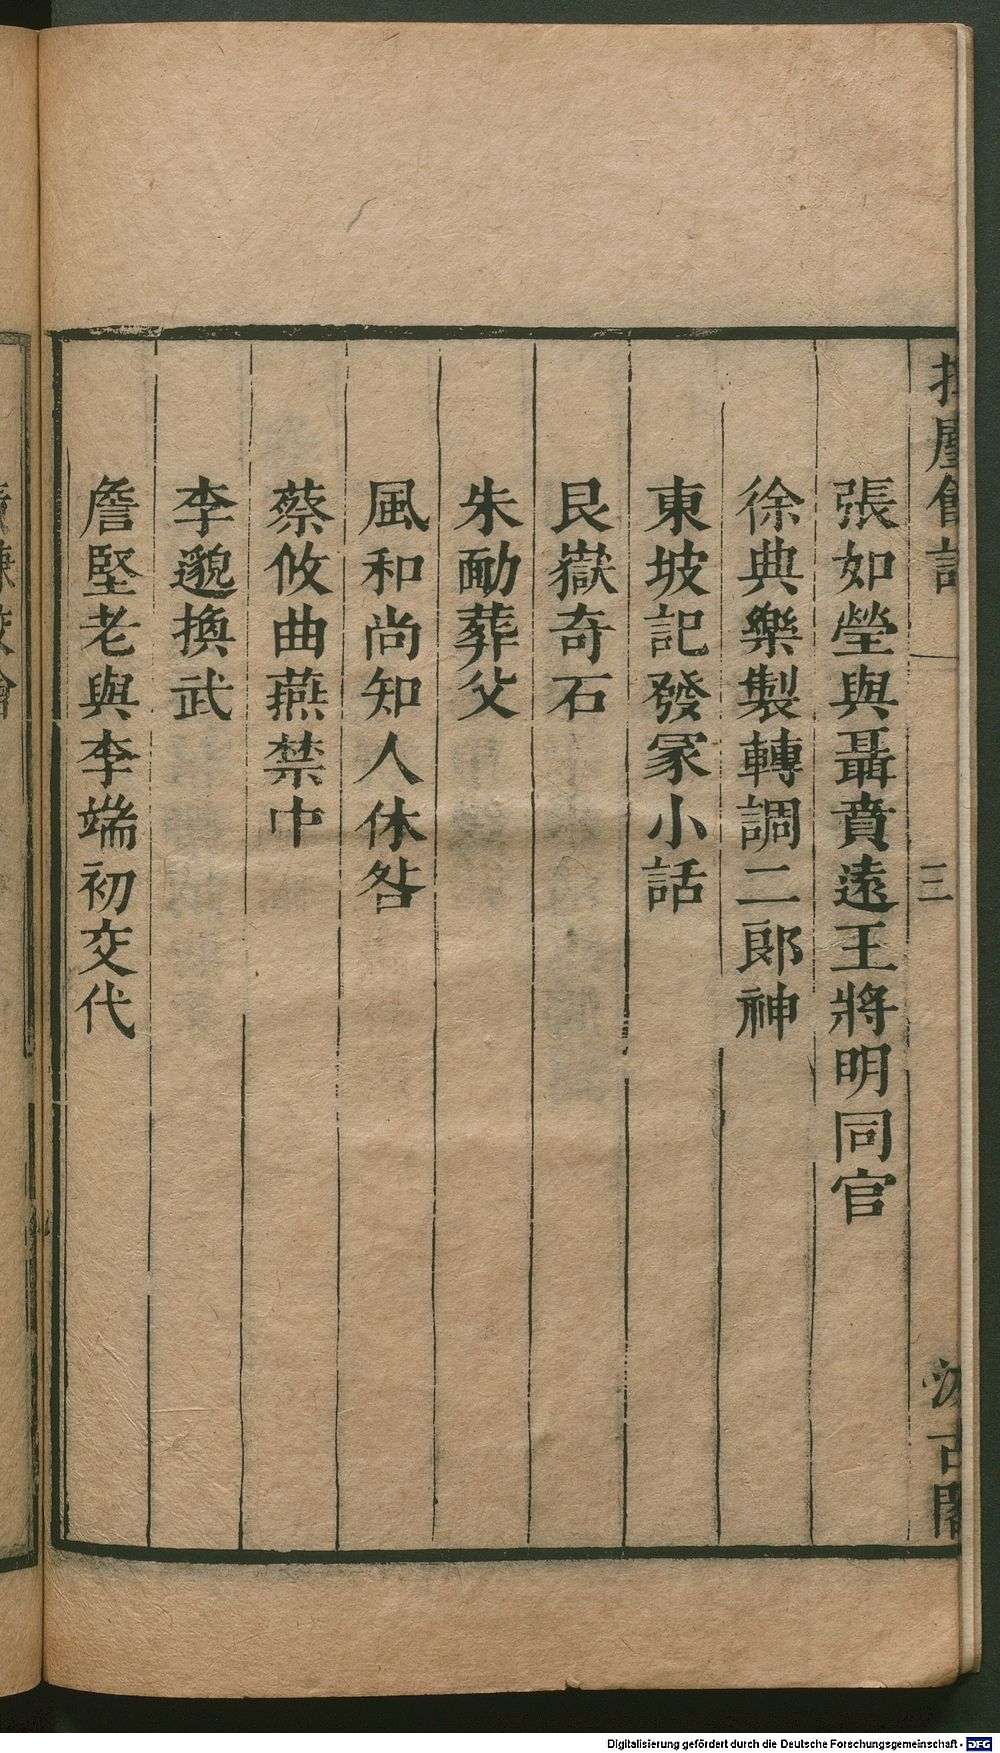 三
張如瑩與聶賁遠王將明同官
徐典樂製轉調二郎神
東坡記發冢小話
艮嶽奇石
朱勔葬父
風和尚知人休咎
蔡攸曲燕禁中
李邈換武
詹堅老與李端初交代
Digitalisierung gefördert durch die Deutsche Forschungsgemeinschaft - DFG